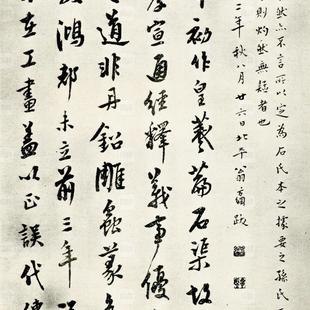 然亦不言所以定為石氏本之據要之孫氏
則灼然無疑者也
二年秋八月廿六日北平翁方綱跋
初作皇羲篇石渠故
孝宣通經釋義事優
道非丹鉛雕蟲篆
鴻都未立前三年
在工畫蓋以正誤代